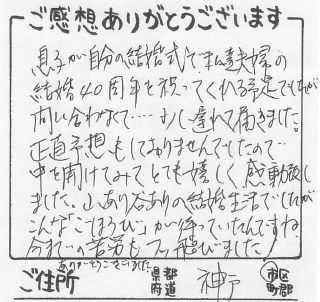 ご感想ありがとうございます
息子が自分の結婚式で私達夫婦の
結婚40周年を祝ってくれる予定でしたが
間に合わなくて……少し遅れて届きました。
正直予想もしておりませんでしたので
中を開けてみてとても嬉しく感動致し
ました。山あり谷ありの結婚生活でしたが
こんな「ごほうび」が待っていたんですね
今までの苦労もフッ飛びました!
ありがとうございました。
ご住所 都道府県 神戸 市区町郡